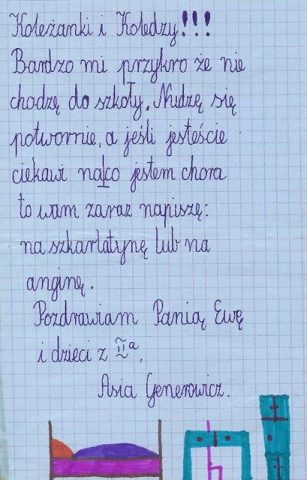 Koleżanki i Koledzy!!!
Bardzo mi przykro że nie
chodzę do szkoły. Nudzę się
potwornie, a jeśli jesteście
ciekawi na co jestem chora
to wam zaraz napiszę:
na szkarlatynę lub na
anginę.
Pozdrawiam Panią Ewę
i dzieci z IIa.
Asia Generowicz.